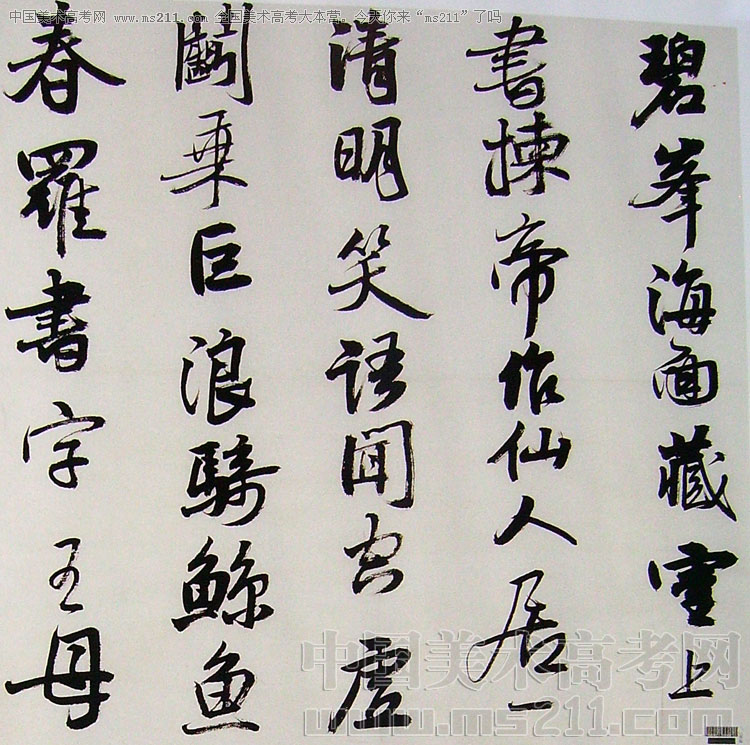 中国美术高考网 www.ms211.com 全国美术高考大本营。今天你来“ms211”了吗
碧峯海面藏靈上
書揀帝作仙人居一
清明笑語聞空虛
鬬乘巨浪騎鯨魚
春羅書字王母
中国美术高考网
www.ms211.com